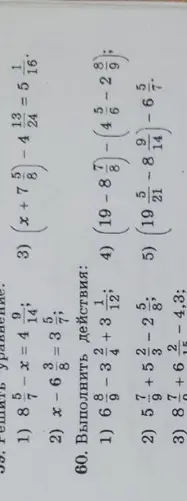 59. Решить уравнение:
1) 8 5/7 − x = 4 9/14;
2) x − 6 3/8 = 3 5/7;
3) (x + 7 5/8) − 4 13/24 = 5 1/16.
60. Выполнить действия:
1) 6 8/9 − 3 2/4 + 3 1/12;
2) 5 7/9 + 5 2/3 − 2 5/8;
3) 8 7/9 + 6 2/15 − 4,3;
4) (19 − 8 7/8) − (4 5/6 − 2 8/9);
5) (19 5/21 − 8 9/14) − 6 5/7.